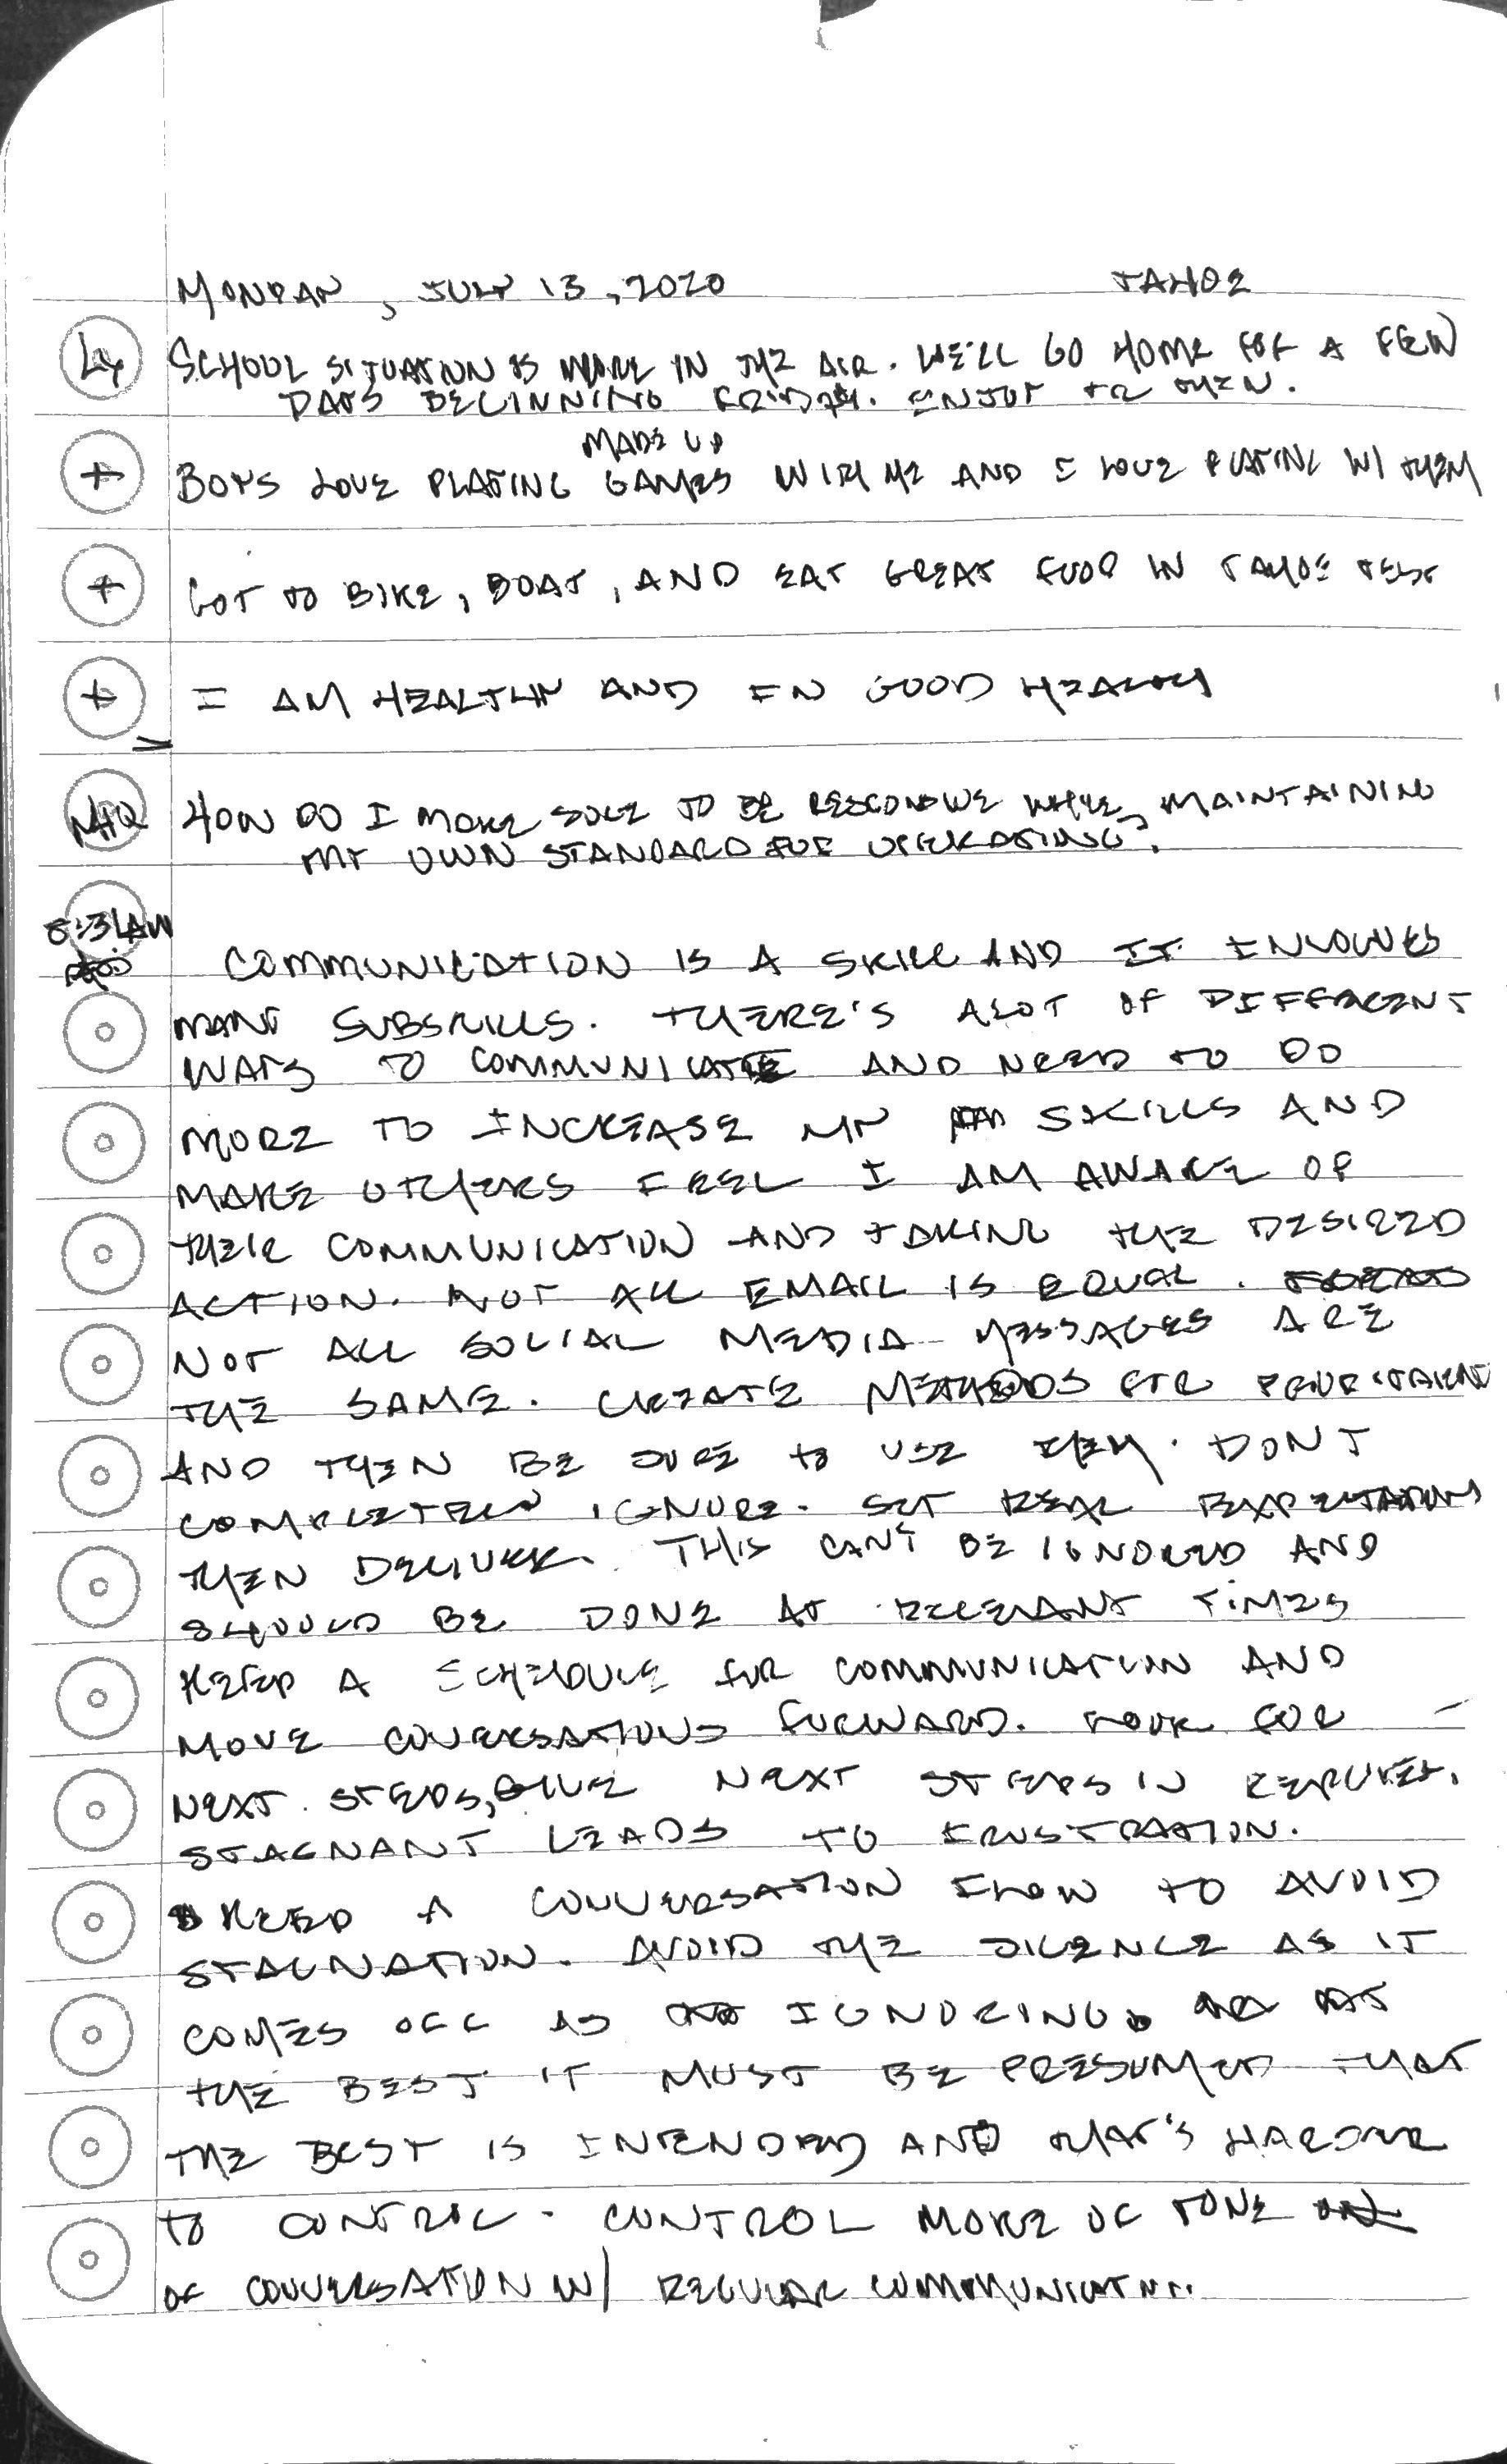 MONDAY, JULY 13, 2020 TAHOE
L4 SCHOOL SITUATION IS MORE IN THE AIR. WE'LL GO HOME FOR A FEW
DAYS BEGINNING FRIDAY. ENJOY TIL THEN.
MADE UP
+ BOYS LOVE PLAYING GAMES WITH ME AND I LOVE PLAYING W/ THEM
+ GOT TO BIKE, BOAT, AND EAT GREAT FOOD IN TAHOE
+ I AM HEALTHY AND IN GOOD HEALTH
MHQ HOW DO I MAKE SURE TO BE RESPONSIVE WHILE MAINTAINING
MY OWN STANDARD FOR OPERATING?
8:31AM
COMMUNICATION IS A SKILL AND IT INVOLVES
MANY SUBSKILLS. THERE'S ALOT OF DIFFERENT
WAYS TO COMMUNICATE AND NEED TO DO
MORE TO INCREASE MY SKILLS AND
MAKE OTHERS FEEL I AM AWARE OF
THEIR COMMUNICATION AND TAKING THE DESIRED
ACTION. NOT ALL EMAIL IS EQUAL.
NOT ALL SOCIAL MEDIA MESSAGES ARE
THE SAME. CREATE METHODS FOR PRIORITAKING
AND THEN BE SURE TO USE THEM. DONT
COMPLETELY IGNORE. SET REAL EXPECTATIONS
THEN DELIVER. THIS CAN'T BE IGNORED AND
SHOULD BE DONE AT RELEVANT TIMES
KEEP A SCHEDULE FOR COMMUNICATION AND
MOVE CONVERSATIONS FORWARD. LOOK FOR
NEXT STEPS, GIVE NEXT STEPS IN REPLIES.
STAGNANT LEADS TO FRUSTRATION.
KEEP A CONVERSATION FLOW TO AVOID
STAGNATION. AVOID THE SILENCE AS IT
COMES OFF AS IGNORING. AT
THE BEST IT MUST BE PRESUMED THAT
THE BEST IS INTENDED AND THAT'S HARDER
TO CONTROL. CONTROL MORE OF TONE
OF CONVERSATION W/ REGULAR COMMUNICATION.